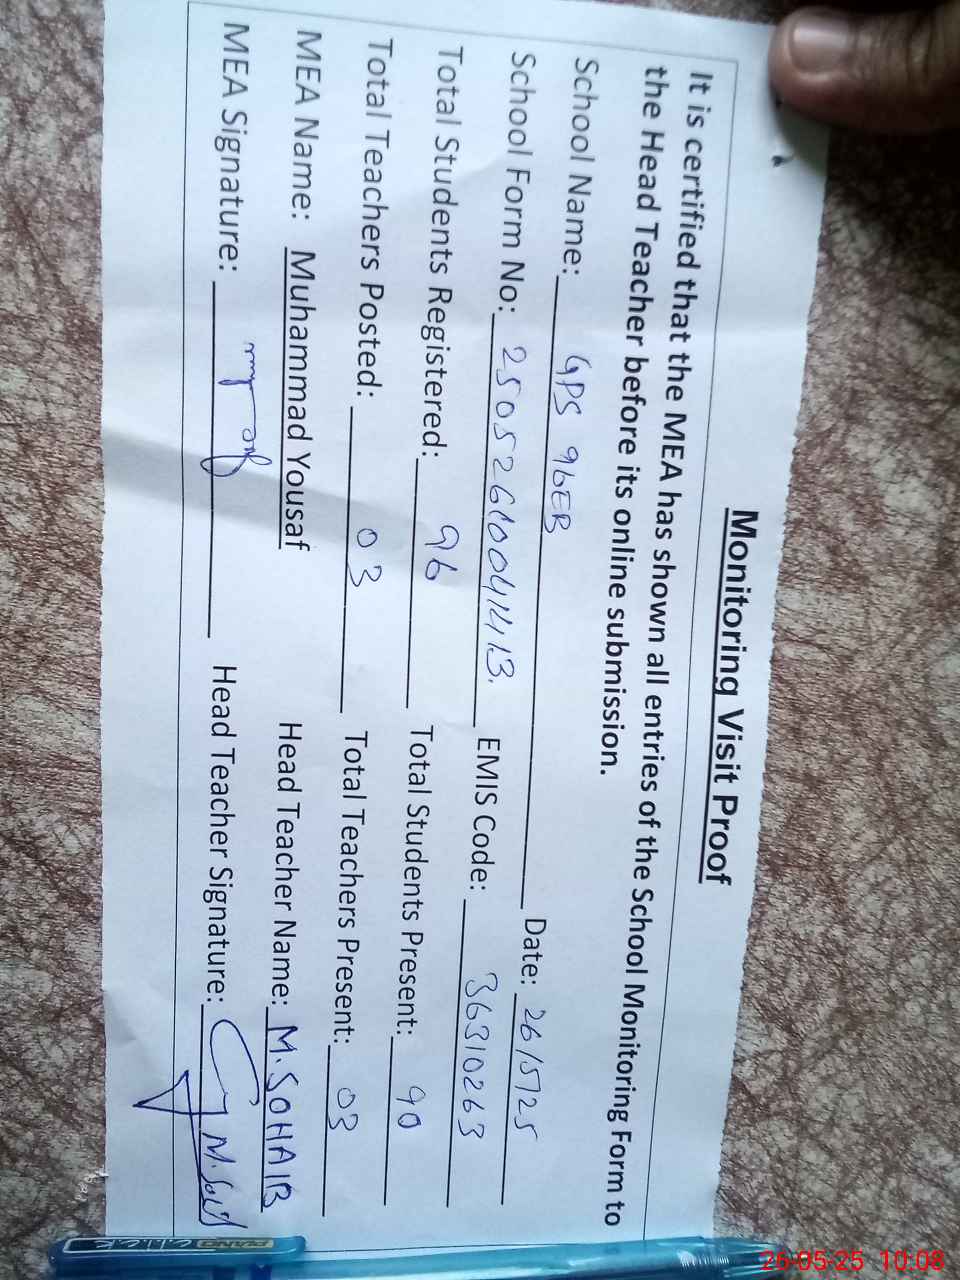 Monitoring Visit Proof
It is certified that the MEA has shown all entries of the School Monitoring Form to
the Head Teacher before its online submission.
School Name: GPS 96EB Date: 26/5/25
School Form No: 25052610041413. EMIS Code: 36310263
Total Students Registered: 96 Total Students Present: 90
Total Teachers Posted: 03 Total Teachers Present: 03
MEA Name: Muhammad Yousaf Head Teacher Name: M.SOHAIB
MEA Signature: Head Teacher Signature:
PIANO CLICK
26-05-25 10:08